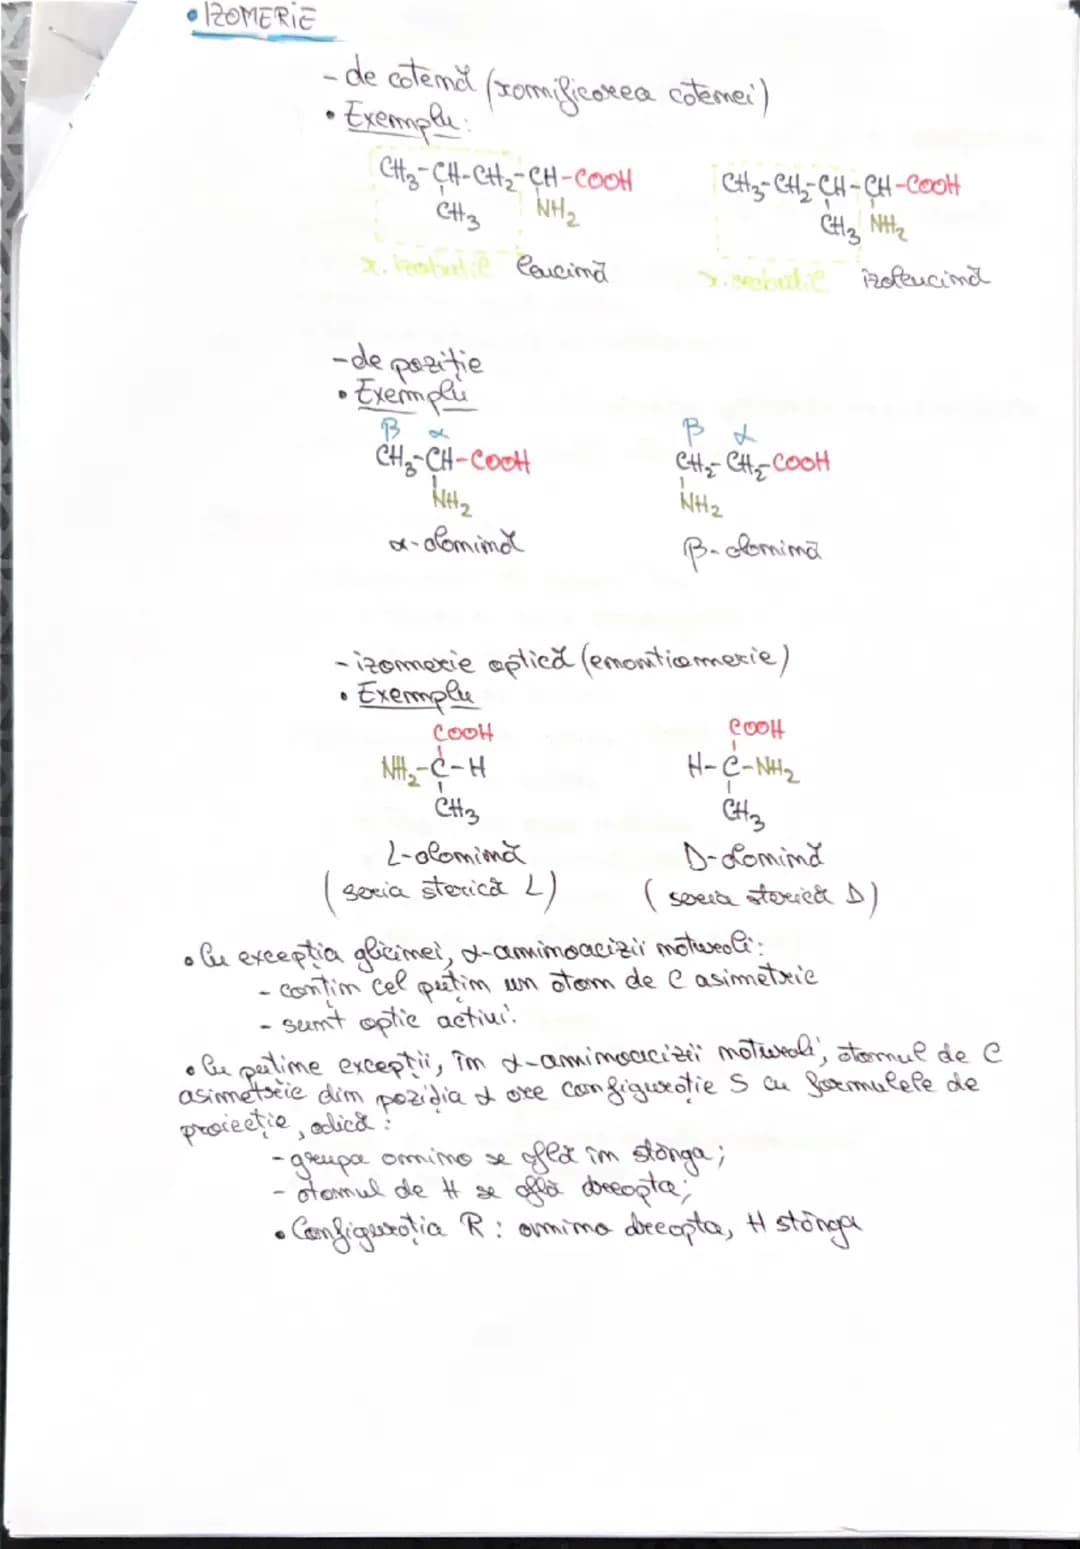 • IZOMERIE
- de catenă (ramificarea catenei)
• Exemplu:
CH3-CH-CH2-CH-COOH CH3-CH2-CH-CH-COOH
CH3 NH2 CH3 NH2
r. izobutil leucină r. secbutil izoleucină
- de poziție
• Exemplu
β α β α
CH3-CH-COOH CH2-CH2-COOH
NH2 NH2
α-alanină β-alanină
- izomerie optică (enantiomerie)
• Exemplu
COOH COOH
NH2-C-H H-C-NH2
CH3 CH3
L-alanină D-alanină
(seria sterică L) (seria sterică D)
• Cu excepția glicinei, α-aminoacizii naturali:
- conțin cel puțin un atom de C asimetric
- sunt optic activi.
• Cu puține excepții, în α-aminoacizii naturali, atomul de C
asimetric din poziția α are configurație S cu formulele de
proiecție, adică:
- grupa amino se află în stânga;
- atomul de H se află dreapta;
• Configurația R: amino dreapta, H stânga